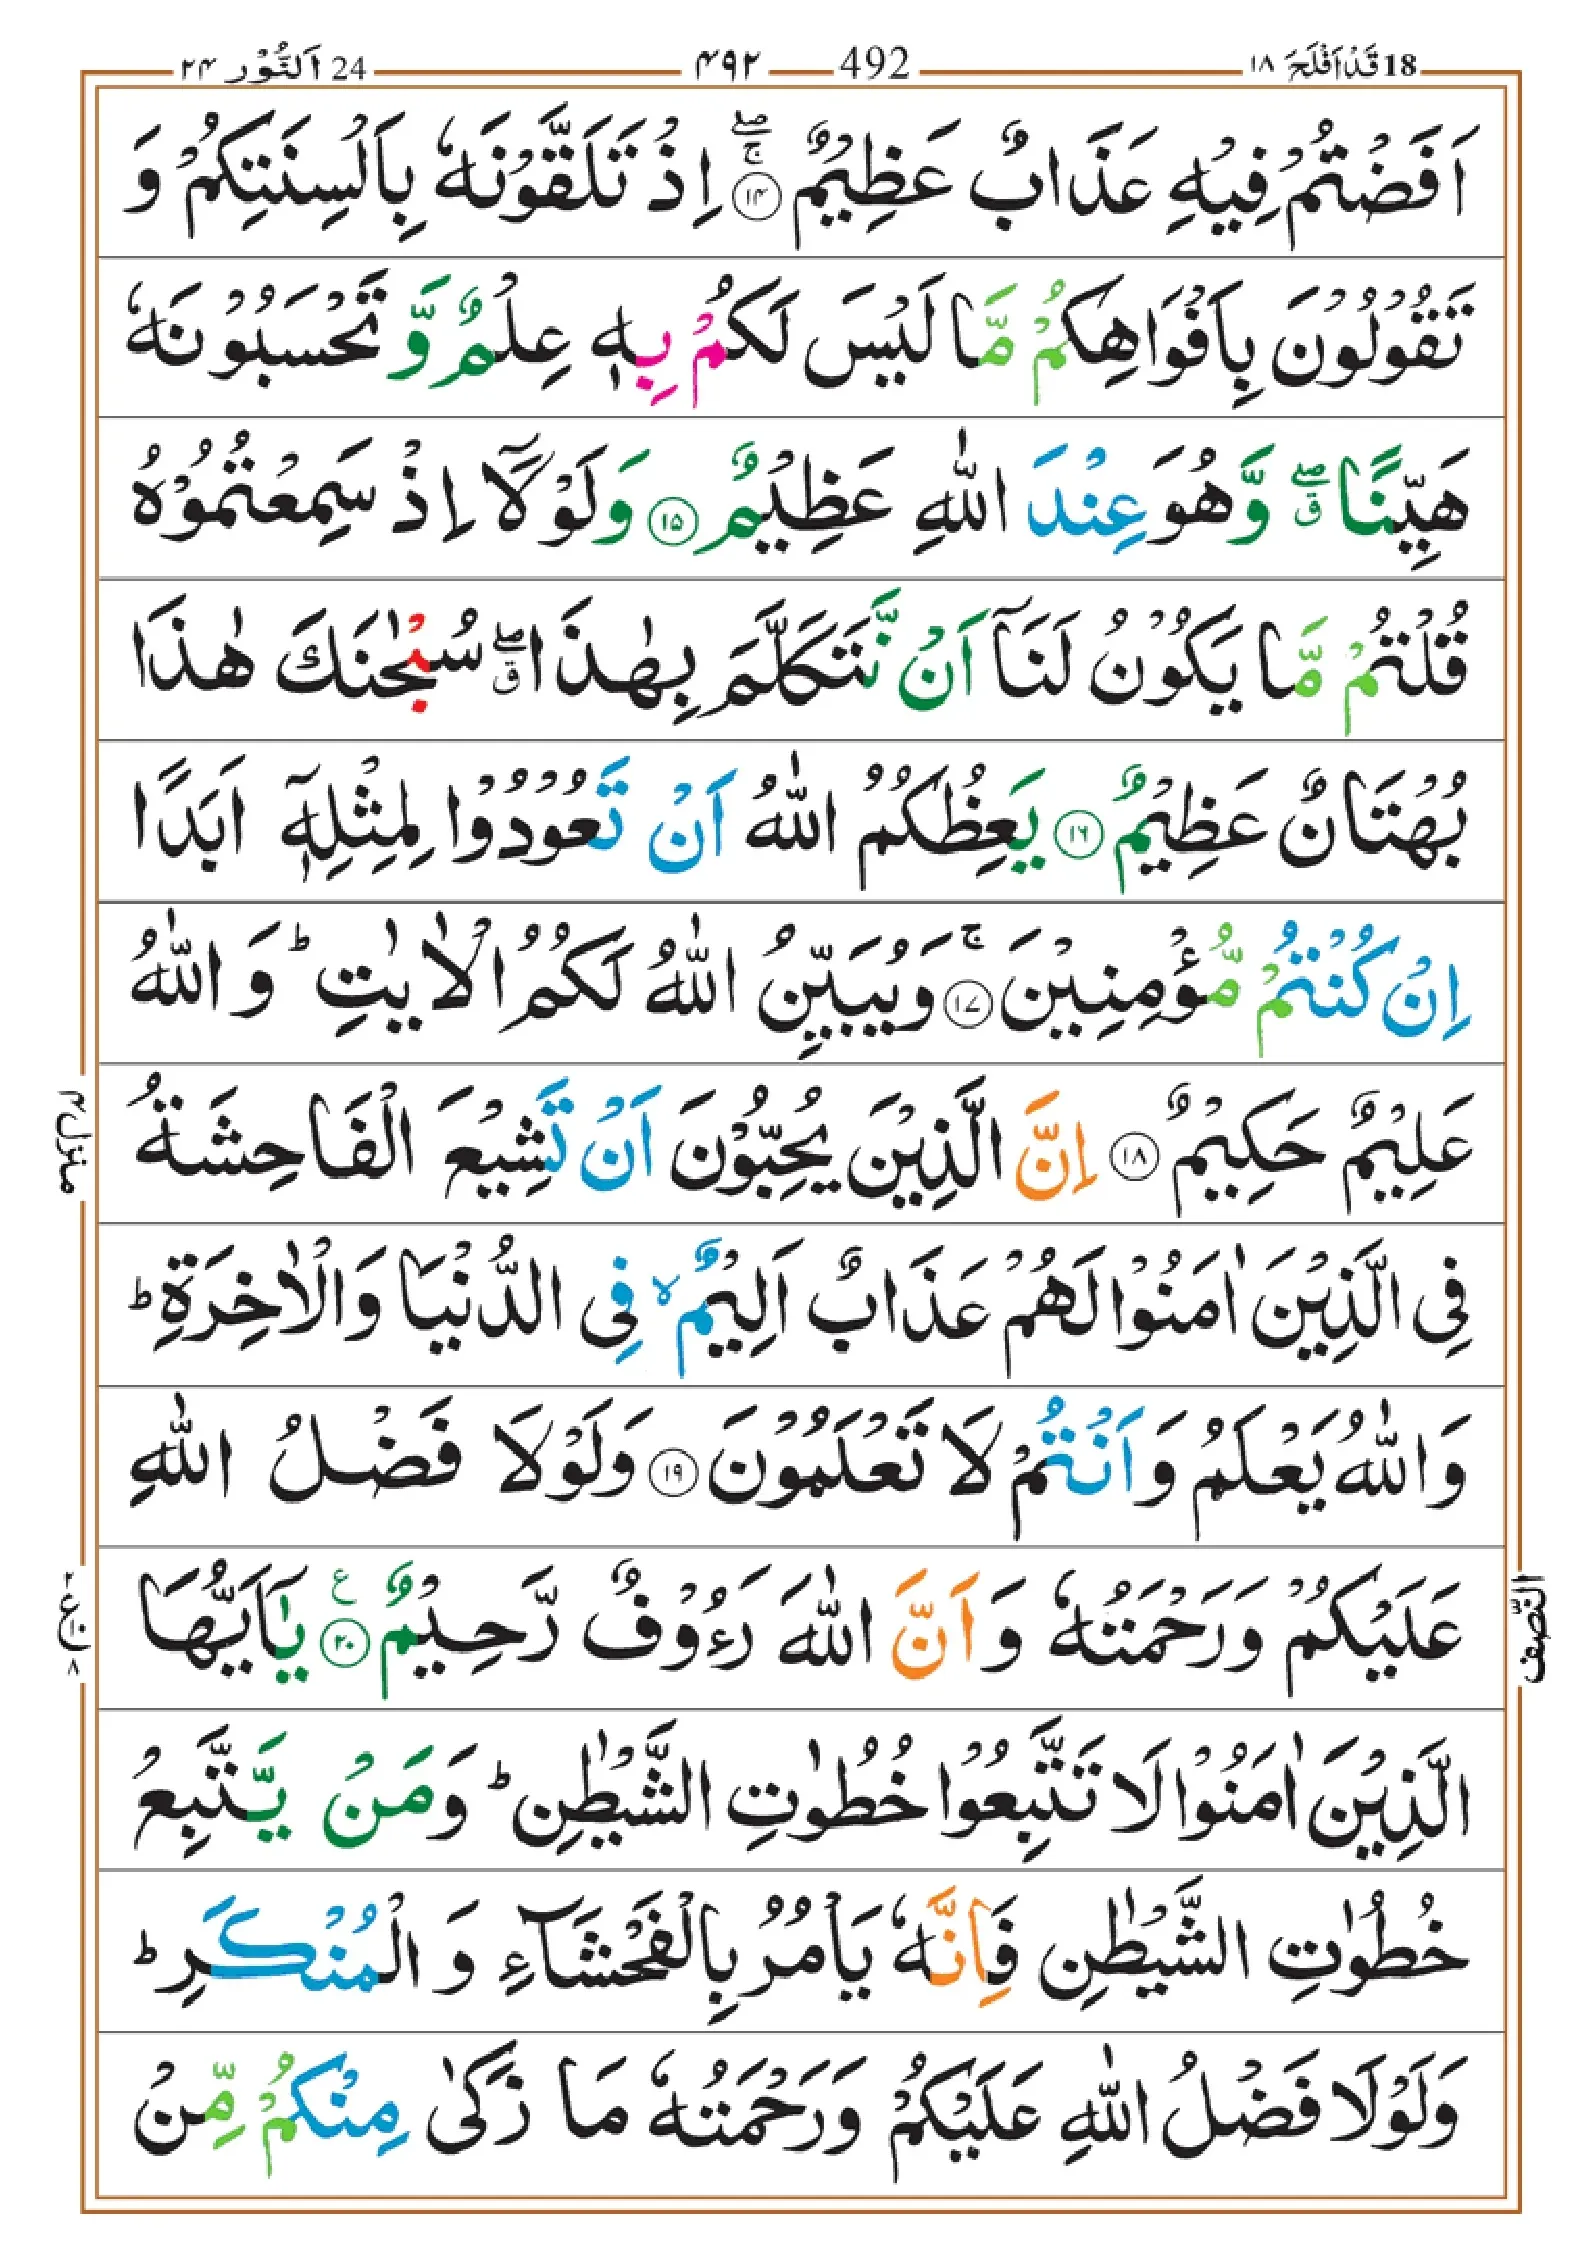 18 قَدْ اَفْلَحَ ۱۸ 492 ۴۹۲ 24 اَلنُّوْر ۲۴
اَفَضْتُمْ فِيْهِ عَذَابٌ عَظِيْمٌ ۚۖ ﴿۱۴﴾ اِذْ تَلَقَّوْنَهٗ بِاَلْسِنَتِكُمْ وَ
تَقُوْلُوْنَ بِاَفْوَاهِكُمْ مَّا لَيْسَ لَكُمْ بِهٖ عِلْمٌ وَّ تَحْسَبُوْنَهٗ
هَيِّنًا ۖۗ وَّ هُوَ عِنْدَ اللّٰهِ عَظِيْمٌ ﴿۱۵﴾ وَ لَوْلَاۤ اِذْ سَمِعْتُمُوْهُ
قُلْتُمْ مَّا يَكُوْنُ لَنَاۤ اَنْ نَّتَكَلَّمَ بِهٰذَا ۖۗ سُبْحٰنَكَ هٰذَا
بُهْتَانٌ عَظِيْمٌ ﴿۱۶﴾ يَعِظُكُمُ اللّٰهُ اَنْ تَعُوْدُوْا لِمِثْلِهٖۤ اَبَدًا
اِنْ كُنْتُمْ مُّؤْمِنِيْنَ ۚ ﴿۱۷﴾ وَ يُبَيِّنُ اللّٰهُ لَكُمُ الْاٰيٰتِ ؕ وَ اللّٰهُ
عَلِيْمٌ حَكِيْمٌ ﴿۱۸﴾ اِنَّ الَّذِيْنَ يُحِبُّوْنَ اَنْ تَشِيْعَ الْفَاحِشَةُ
فِي الَّذِيْنَ اٰمَنُوْا لَهُمْ عَذَابٌ اَلِيْمٌ ۙ فِي الدُّنْيَا وَ الْاٰخِرَةِ ؕ
وَ اللّٰهُ يَعْلَمُ وَ اَنْتُمْ لَا تَعْلَمُوْنَ ﴿۱۹﴾ وَ لَوْلَا فَضْلُ اللّٰهِ
عَلَيْكُمْ وَ رَحْمَتُهٗ وَ اَنَّ اللّٰهَ رَءُوْفٌ رَّحِيْمٌ ﴿۲۰﴾ ع يٰۤاَيُّهَا
الَّذِيْنَ اٰمَنُوْا لَا تَتَّبِعُوْا خُطُوٰتِ الشَّيْطٰنِ ؕ وَ مَنْ يَّتَّبِعْ
خُطُوٰتِ الشَّيْطٰنِ فَاِنَّهٗ يَاْمُرُ بِالْفَحْشَآءِ وَ الْمُنْكَرِ ؕ
وَ لَوْلَا فَضْلُ اللّٰهِ عَلَيْكُمْ وَ رَحْمَتُهٗ مَا زَكٰى مِنْكُمْ مِّنْ
منزل ۴
النّصف